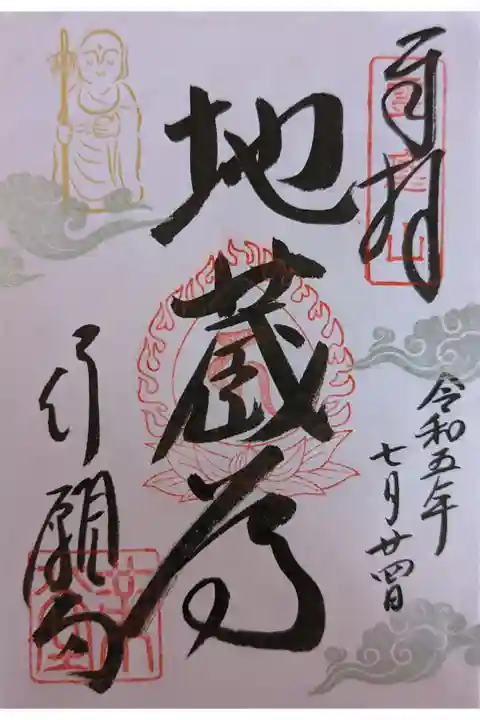 奉拝
令和五年
七月廿四日
地蔵尊
行願寺